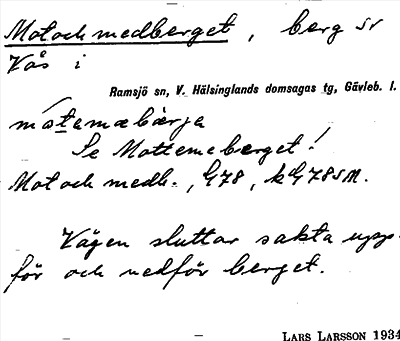 Motochmedberget, berg sr
Vås i
Ramsjö sn, V. Hälsinglands domsagas tg, Gävleb. l.
mo̱temæbærja
Se Mottemeberget!
Motochmedb., G78, kG78SM.
Vägen sluttar sakta upp-
för och nedför berget.
LARS LARSSON 1934